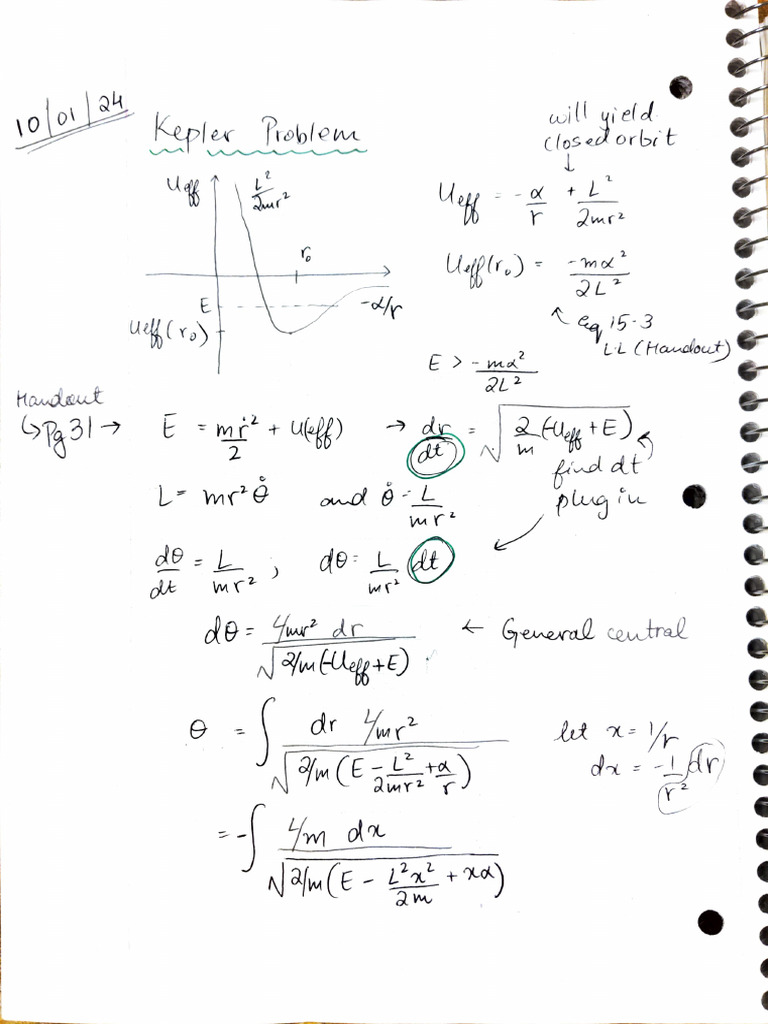 10/01/24
Kepler Problem
will yield
closed orbit
↓
Ueff
L²/2mr²
r₀
E
Ueff(r₀)
-α/r
Ueff = -α/r + L²/2mr²
Ueff(r₀) = -mα²/2L²
↖ eq 15-3
L.L (Handout)
E > -mα²/2L²
Handout
↳ Pg 31 → E = mṙ²/2 + U(eff) → dr/dt = √(2/m (-Ueff + E))
find dt
plug in
L = mr² θ̇ and θ̇ = L/mr²
dθ/dt = L/mr² ; dθ = L/mr² dt
dθ = L/mr² dr / √(2/m (-Ueff + E)) ← General central
θ = ∫ dr L/mr² / √(2/m (E - L²/2mr² + α/r))
let x = 1/r
dx = -1/r² dr
= -∫ L/m dx / √(2/m (E - L²x²/2m + xα))